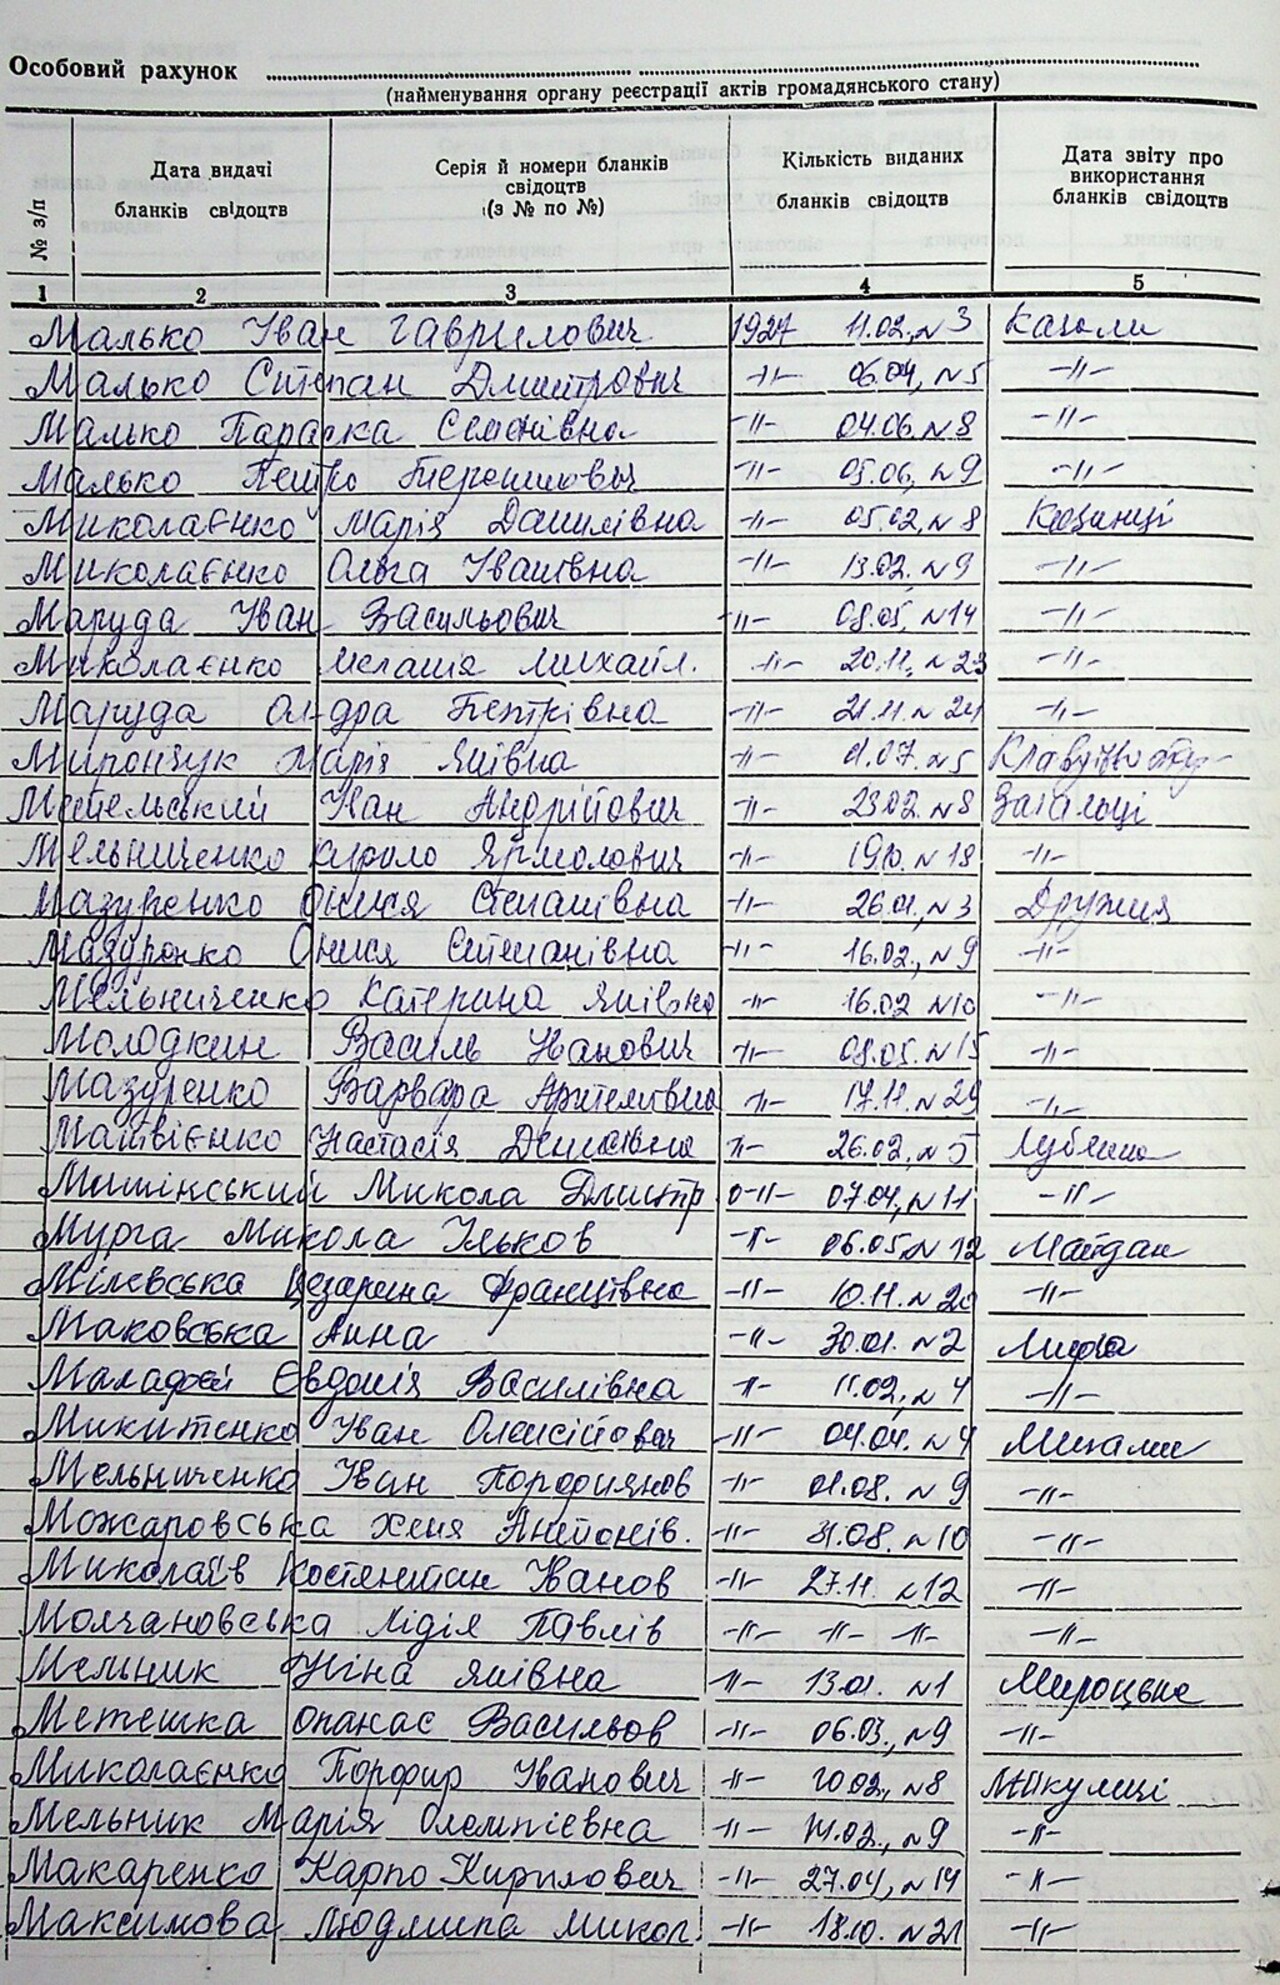 Особовий рахунок
(найменування органу реєстрації актів громадянського стану)
№ з/п
Дата видачі бланків свідоцтв
Серія й номери бланків свідоцтв (з № по №)
Кількість виданих бланків свідоцтв
Дата звіту про використання бланків свідоцтв
1 2 3 4 5
Малько Іван Гаврилович 1927 11.02, № 3
Малько Степан Дмитрович -//- 06.04, № 5 -//-
Малько Параска Семенівна -//- 04.06. № 8 -//-
Малько Петро -//- 05.06, № 9 -//-
Миколаєнко Марія Данилівна -//- 05.02, № 8
Миколаєнко Ольга Іванівна -//- 13.02. № 9 -//-
Маруда Іван Васильович -//- 08.05, № 14 -//-
Миколаєнко Меланія Михайл. -//- 20.11. № 23 -//-
Маруда Ол-дра Петрівна -//- 21.11. № 24 -//-
Мирончук Марія Яківна -//- 01.07. № 5
Иван Андрійович -//- 23.02. № 8 Загальці
Мельниченко Кирило Ярмолович -//- 19.10. № 18 -//-
Мазуренко Онися Степанівна -//- 26.01, № 3 Дружня
Мазуренко Онися Степанівна -//- 16.02., № 9 -//-
Мельниченко Катерина Яківна -//- 16.02 № 10 -//-
Молодкин Василь Иванович -//- 08.05. № 15 -//-
Мазуренко Варвара Артемівна -//- 17.11. № 29 -//-
Матвієнко Настасія Денисівна -//- 26.02, № 5 Луб'янка
Микола Дмитр -//- 07.04, № 11 -//-
Мурга Микола Ільков -//- 06.05, № 12 Майдан
Мілевська Цезарина Францівна -//- 10.11. № 20 -//-
Маковська Анна -//- 30.01. № 2 Мирча
Маладжей Євдокія Василівна -//- 11.02, № 4 -//-
Микитенко Іван Олексійович -//- 04.04. № 4
Мельниченко Іван -//- 01.08. № 9 -//-
Можаровська Хеня Антонів. -//- 31.08. № 10 -//-
Миколаїв Костянтин Иванов -//- 27.11. № 12 -//-
Молчановська Лідія Павлів -//- -//- -//- -//-
Мельник Ніна Яківна -//- 13.01. № 1 Мироцьке
Метешка Опанас Васильов -//- 06.03., № 9 -//-
Миколаєнко Порфир Іванович -//- 10.02., № 8 Микуличі
Мельник Марія Олемпієвна -//- 14.02., № 9 -//-
Макаренко Карпо Кирилович -//- 27.04, № 14 -//-
Максимова Людмила Микол. -//- 18.10. № 21 -//-